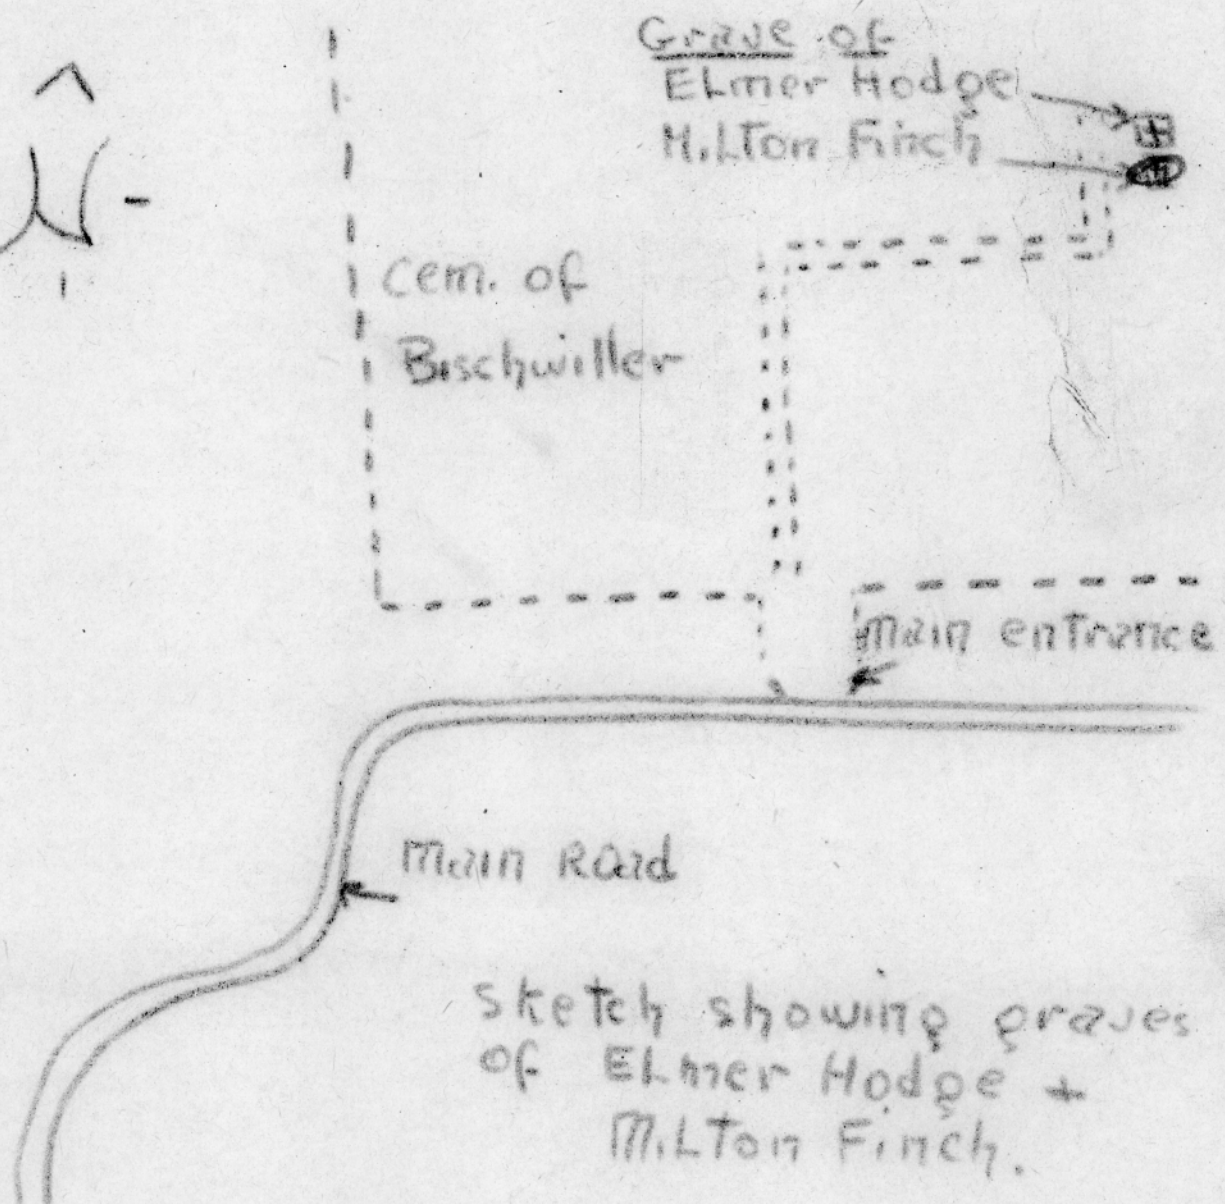 Grave of
ELmer Hodge
MiLTon Finch
Cem. of
Bischwiller
Main entrance
Main Road
Sketch showing graves
of ELmer Hodge +
MiLTon Finch.